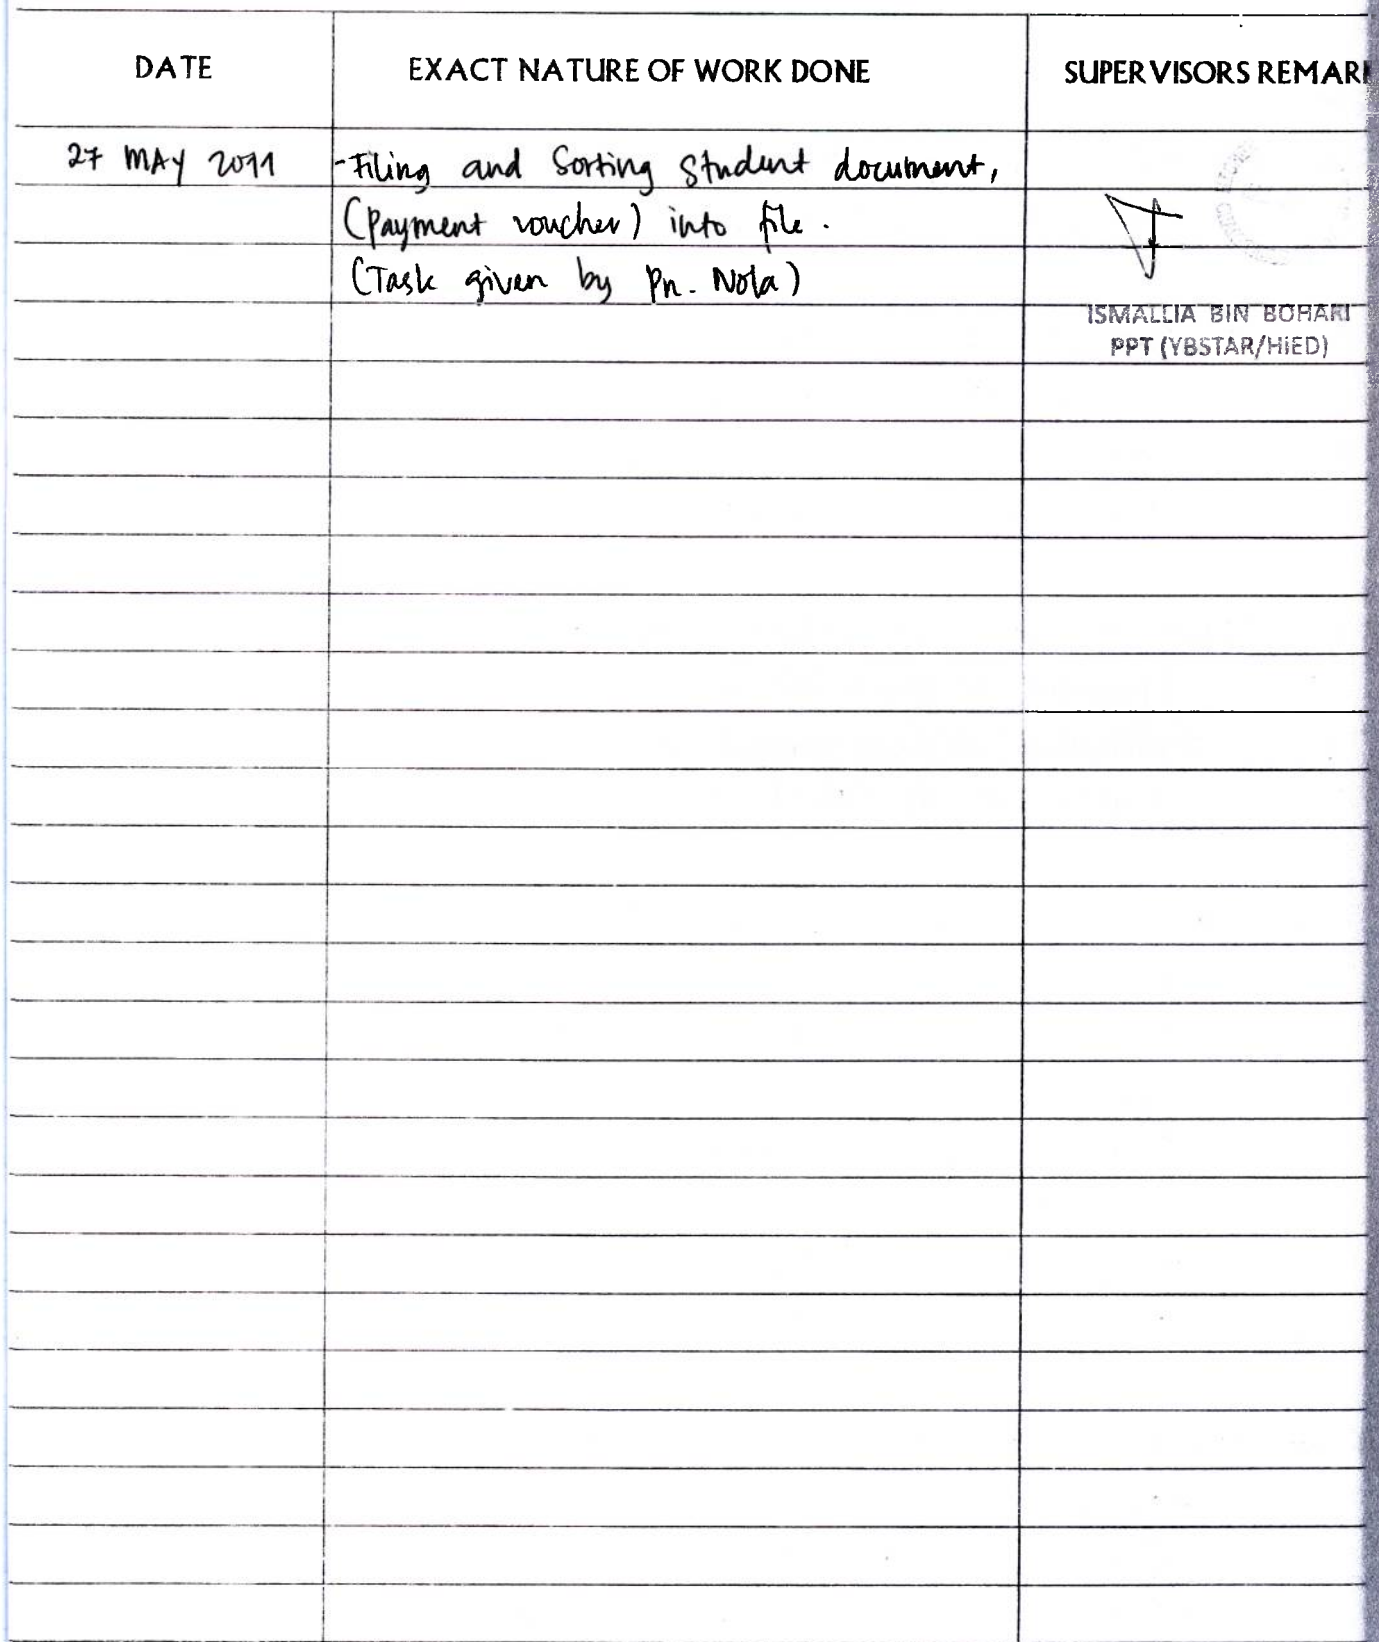 DATE EXACT NATURE OF WORK DONE SUPERVISORS REMAR
27 MAY 2011 -Filing and Sorting Student document,
(Payment voucher) into file.
(Task given by Pn. Nola)
ISMALLIA BIN BOHARI
PPT (YBSTAR/HiED)